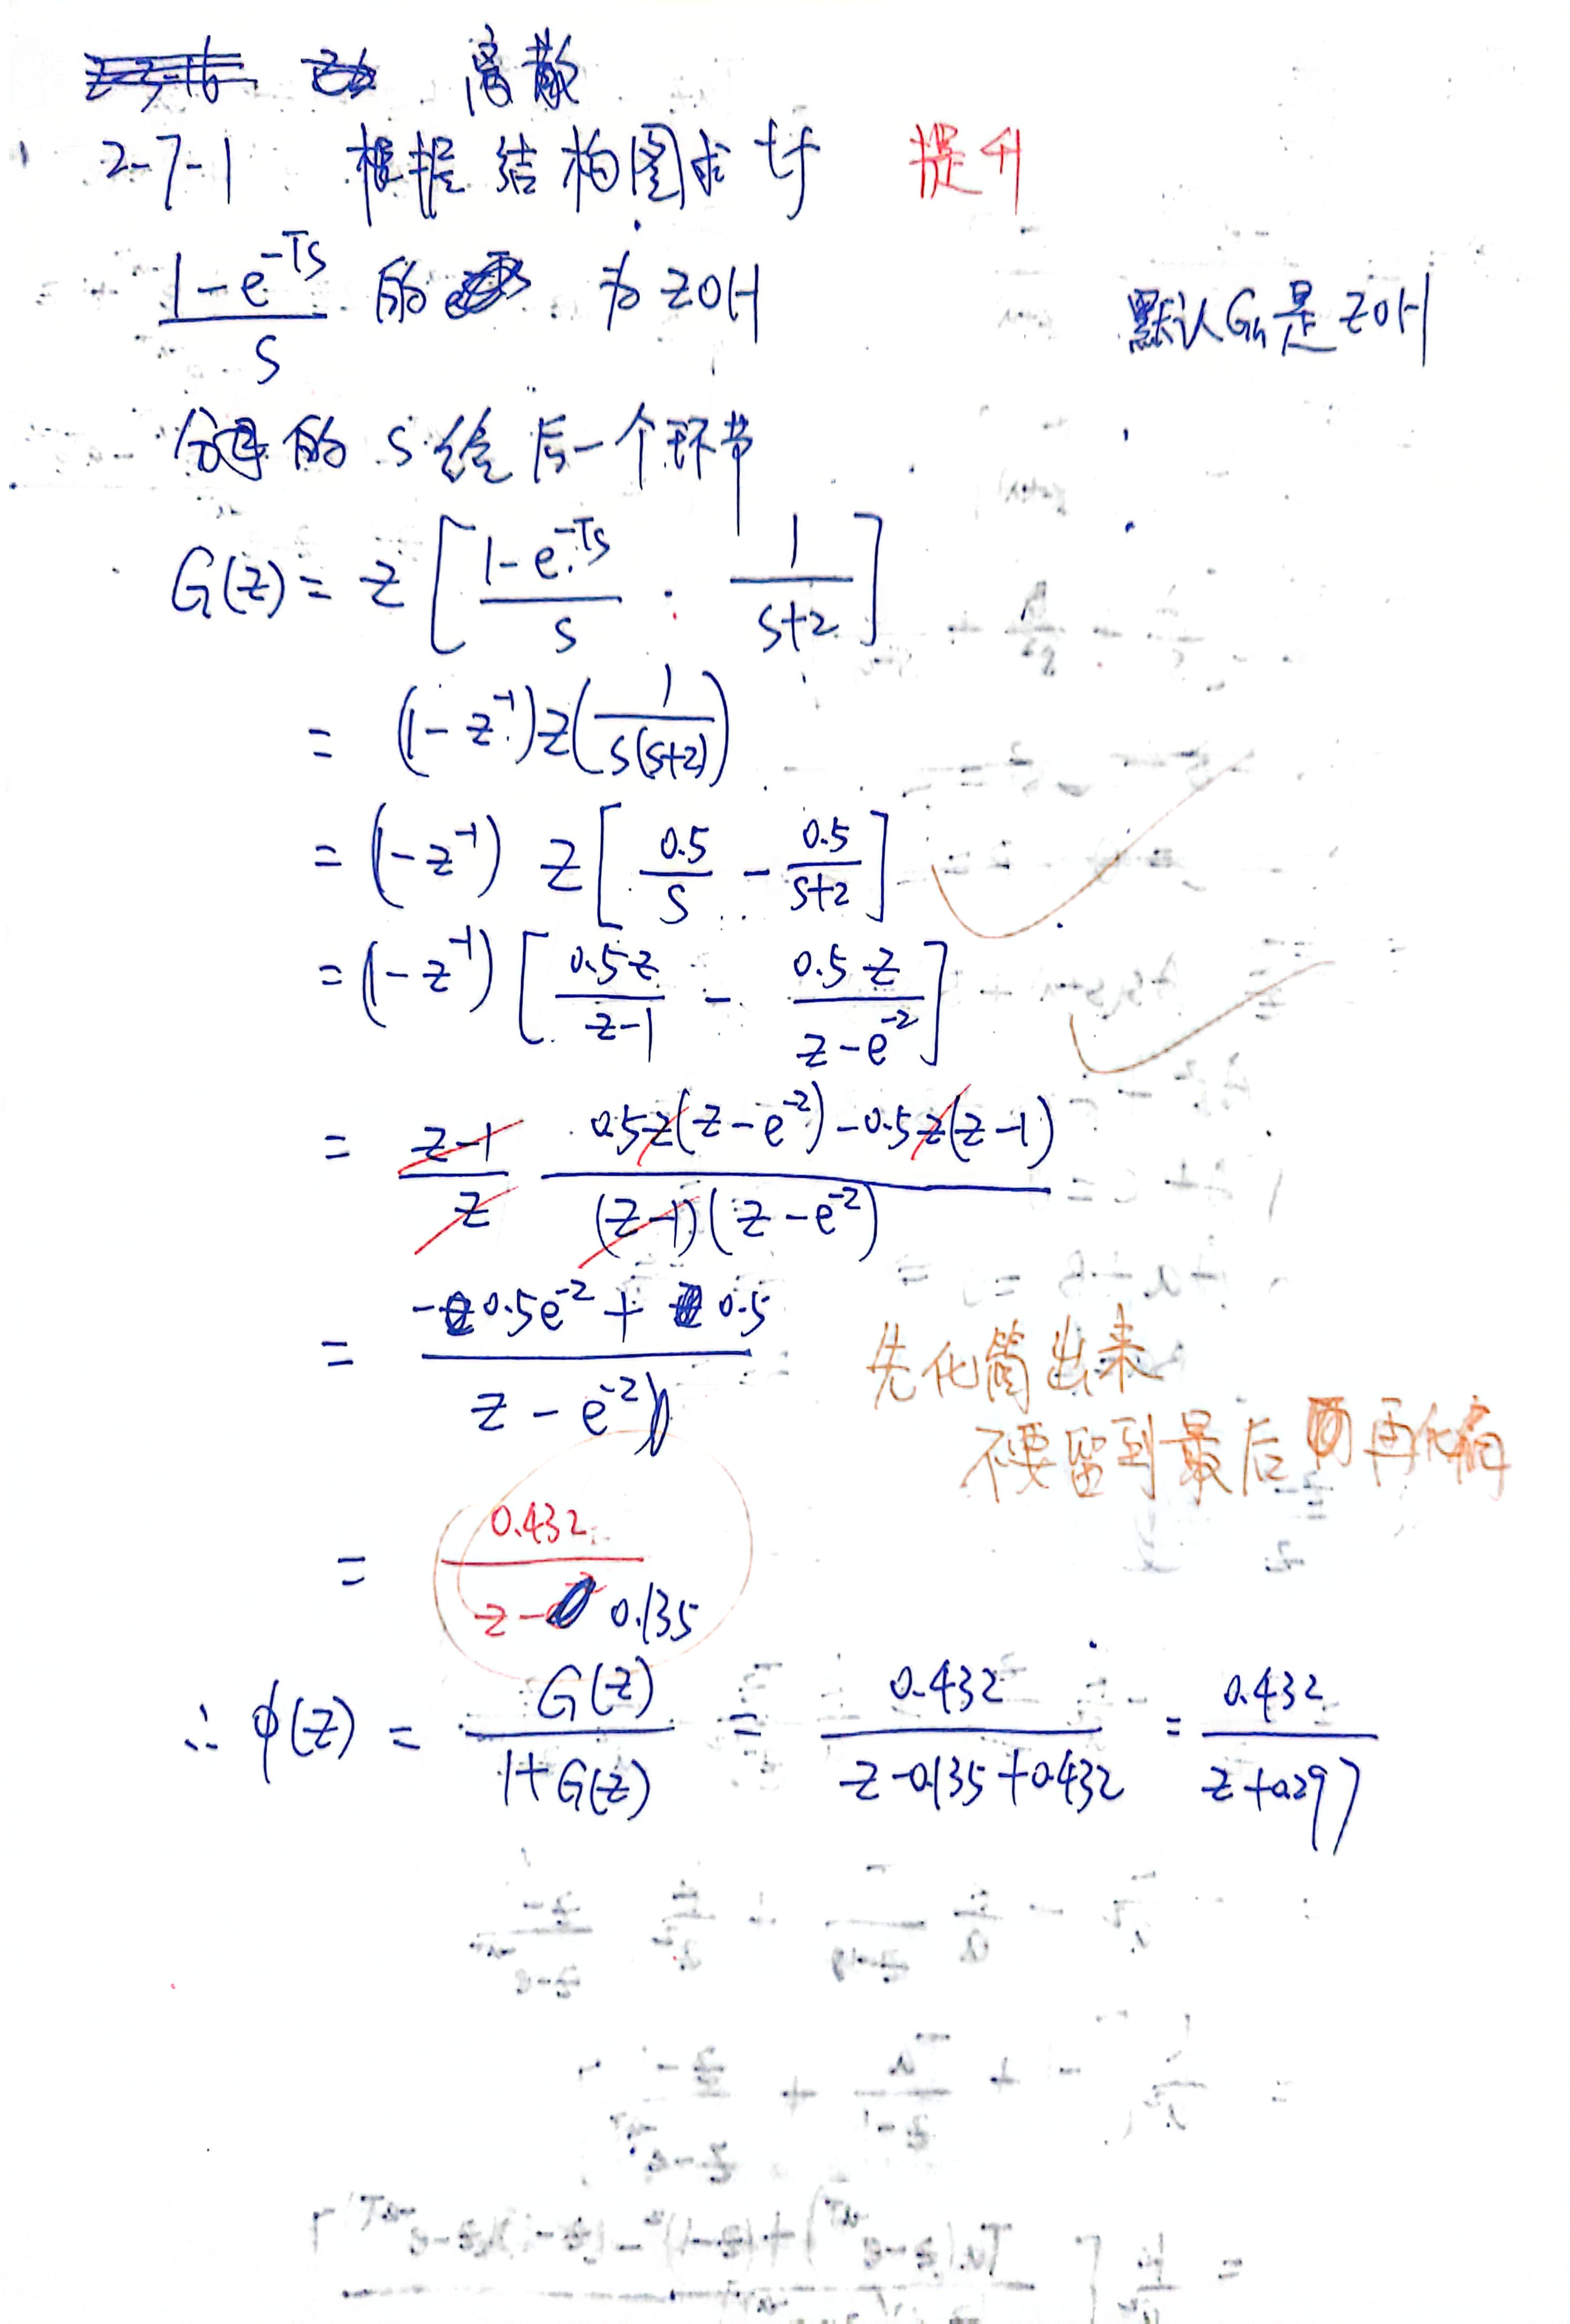 离散
2-7-1 根据结构图求tf 提升
\frac{1-e^{-Ts}}{s} 的 为ZOH 默认Gh是ZOH
分母的 s 给后一个环节
G(z) = z[\frac{1-e^{-Ts}}{s} · \frac{1}{s+2}]
= (1-z^{-1})z(\frac{1}{s(s+2)})
= (1-z^{-1}) z[\frac{0.5}{s} - \frac{0.5}{s+2}]
= (1-z^{-1}) [\frac{0.5z}{z-1} - \frac{0.5z}{z-e^{-2}}]
= \frac{z-1}{z} \frac{0.5z(z-e^{-2})-0.5z(z-1)}{(z-1)(z-e^{-2})}
= \frac{-0.5e^{-2}+0.5}{z-e^{-2}} 先化简出来
不要留到最后再化简
= \frac{0.432}{z-0.135}
∴ φ(z) = \frac{G(z)}{1+G(z)} = \frac{0.432}{z-0.135+0.432} = \frac{0.432}{z+0.297}